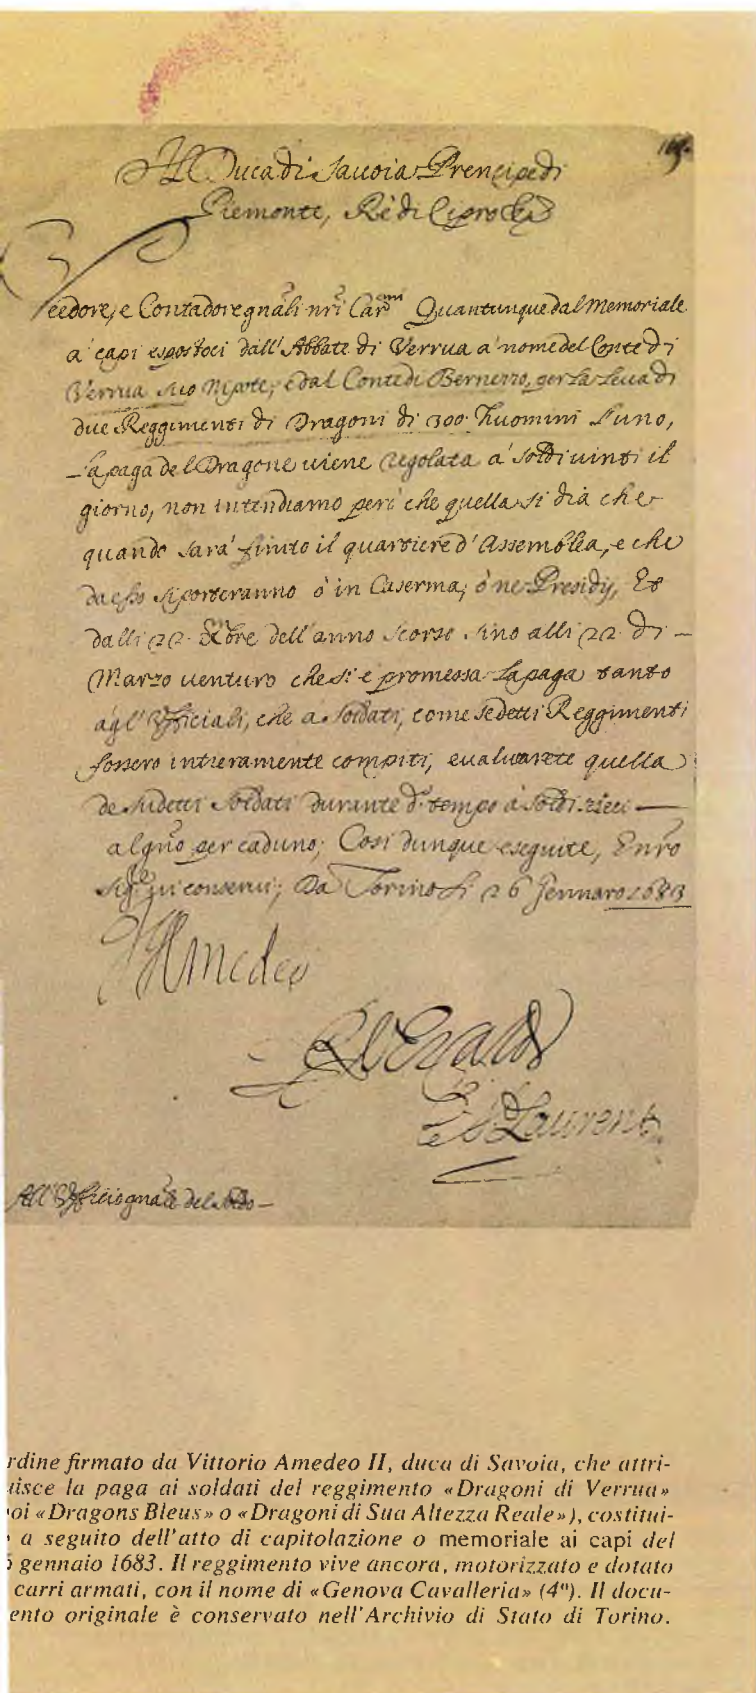 Il Duca di Sauoia Prencipe di
Piemonte, Rè di Cipro &ca
Veedore, e Contadore gnãli nri Carmi Quantunque dal Memoriale
a' capi espostoci dall' Abbate di Verrua a' nome del Conte di
Verrua suo Nipote, e dal Conte di Bernezzo, per la Leua di
due Reggimenti di Dragoni di 300 huomini l'uno,
La paga del Dragone uiene regolata a' soldi uinti il
giorno, non intendiamo però che quella si dia che
quando sarà finito il quartiere d'Assemblea, e che
da esso si porteranno ò in Caserma, ò ne Presidij, Et
dalli 22 Xbre dell'anno scorso sino alli 22 di
Marzo uenturo che si è promessa la paga tanto
agl' Vfficiali, che a Soldati, come se detti Reggimenti
fossero intieramente compiti, eualuarete quella
de sudetti Soldati durante dº tempo a soldi dieci
al gno per caduno; Cosi dunque eseguite, E nro
Sigre ui conserui; Da Torino li 26 Gennaro 1683
V Amedeo
De St Laurent
All' Vfficio gnãle del Soldo
rdine firmato da Vittorio Amedeo II, duca di Savoia, che attri-
uisce la paga ai soldati del reggimento «Dragoni di Verrua»
oi «Dragons Bleus» o «Dragoni di Sua Altezza Reale»), costitui-
a seguito dell'atto di capitolazione o memoriale ai capi del
6 gennaio 1683. Il reggimento vive ancora, motorizzato e dotato
carri armati, con il nome di «Genova Cavalleria» (4º). Il docu-
ento originale è conservato nell'Archivio di Stato di Torino.